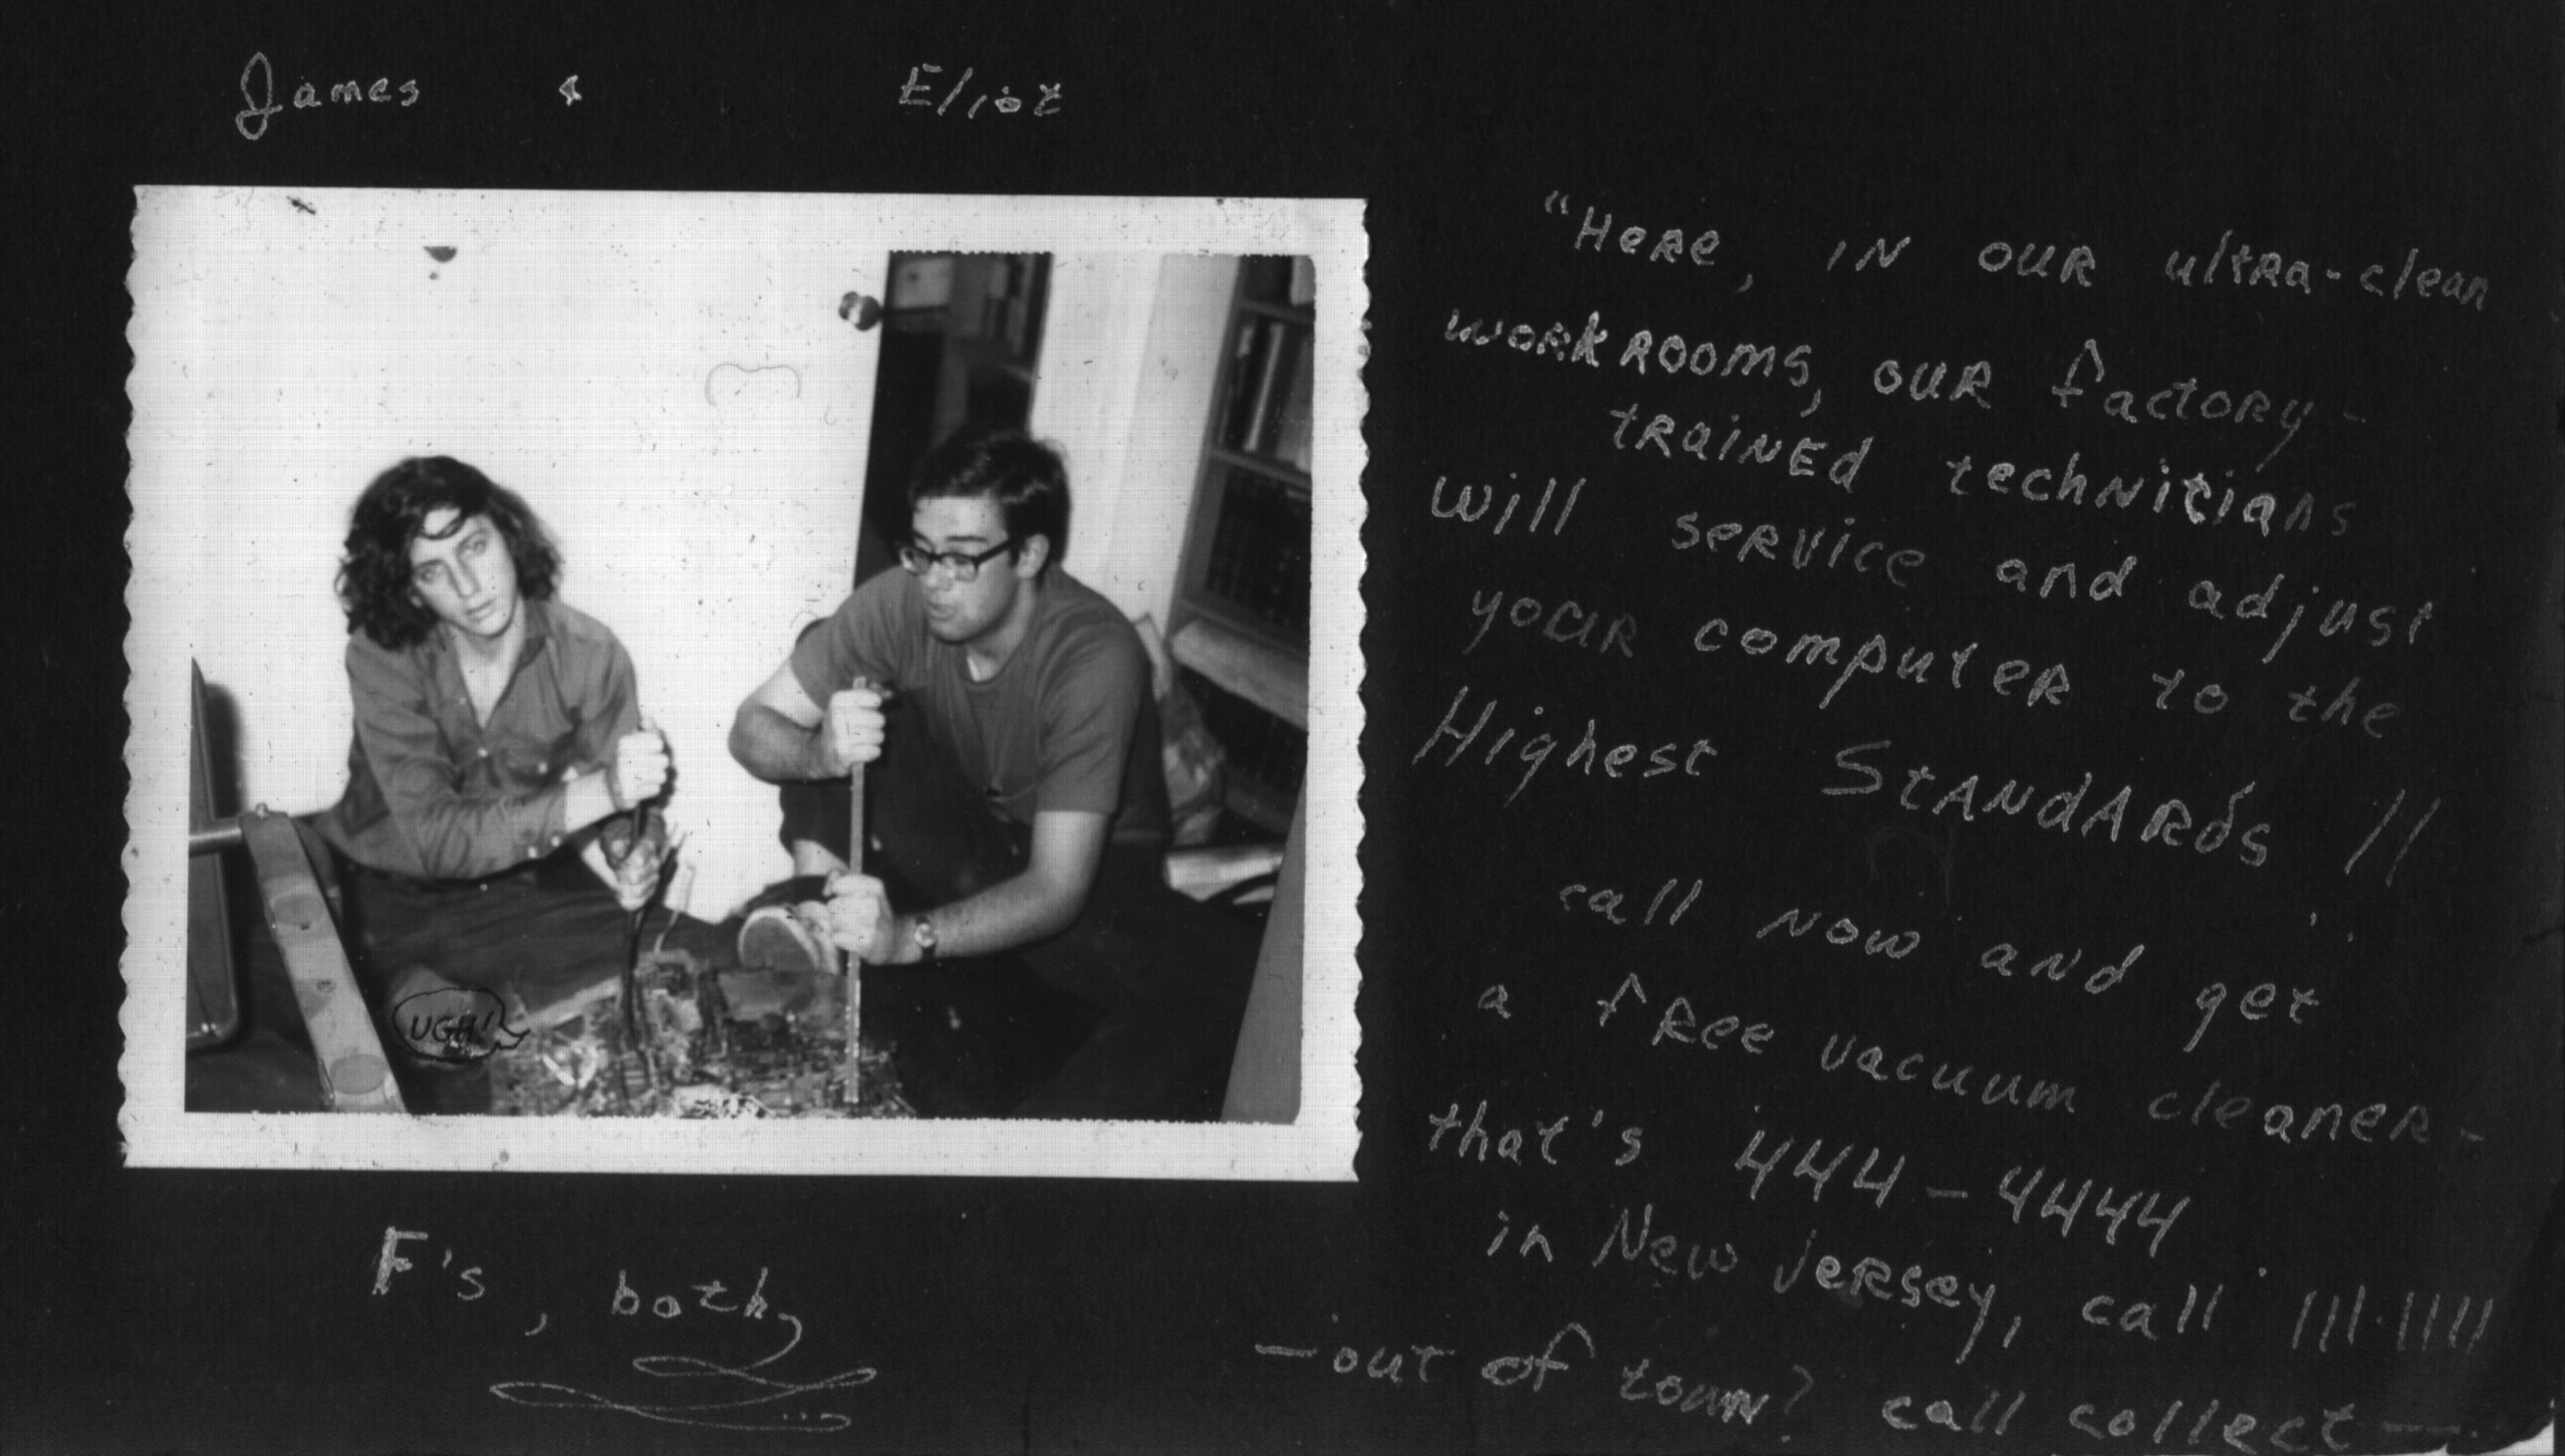 James & Eliot
"Here, in our ultra-clean
workrooms, our factory-
trained technitians
will service and adjust
your computer to the
Highest Standards!!
call now and get
a free vacuum cleaner-
that's 444-4444
in New Jersey, call 111-1111
—out of town? call collect—
UGH!
F's, both